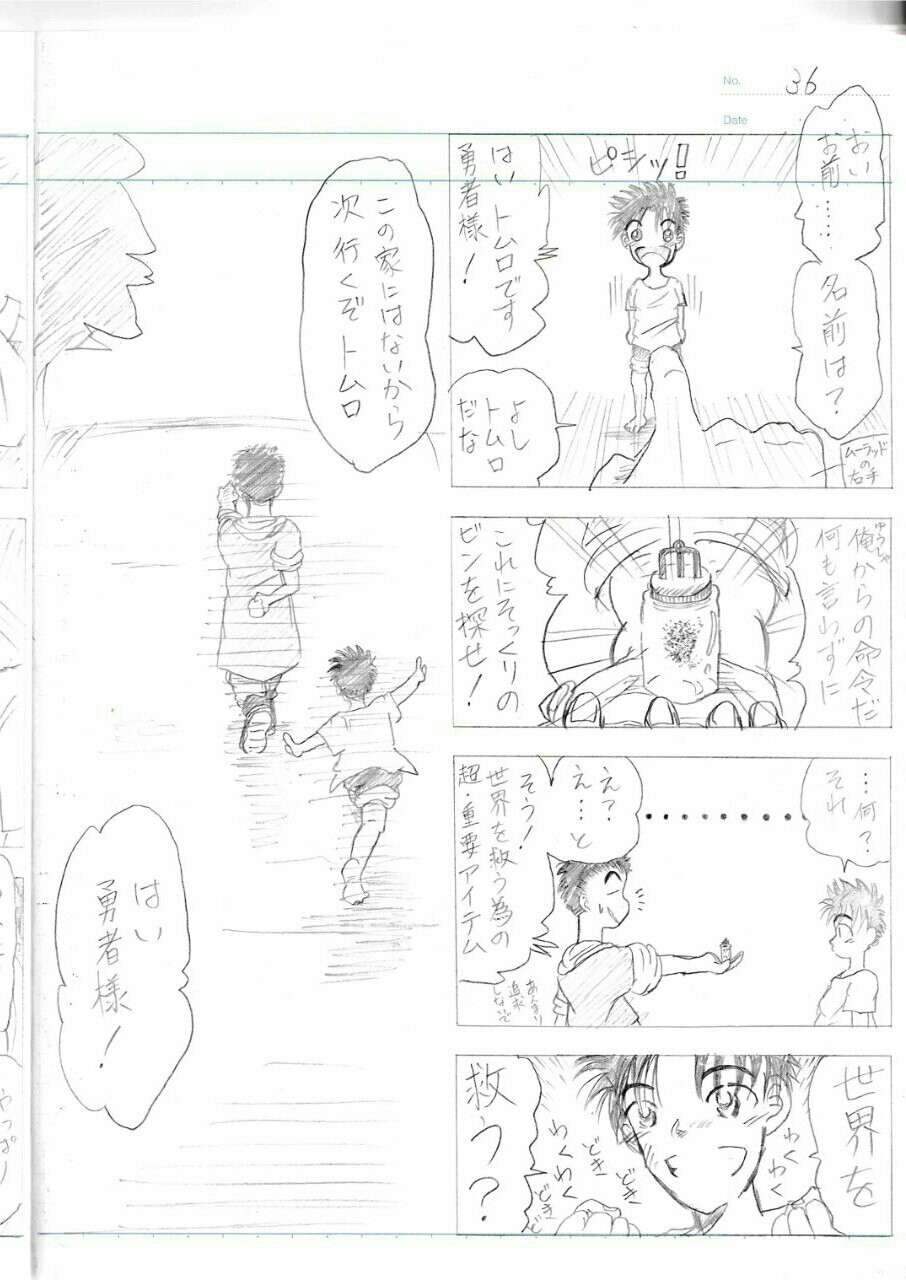 No. 36
Date
おい
お前……
名前は？
ピシッ！
はい トムロです
勇者様！
よし
トムロ
だな
ムーラッドの
右手
俺からの命令だ
ゆうしゃ
何も言わずに
これにそっくりの
ビンを探せ！
…何？
それ
・・・・・・・・・
え？
え…と
そう！
世界を救う為の
超・重要アイテム
あんまり
追求
しないで
世界を
救う？
わくわく
わくわく
どきどき
どきどき
この家にはないから
次 行くぞ トムロ
はい
勇者様！
やっぱり